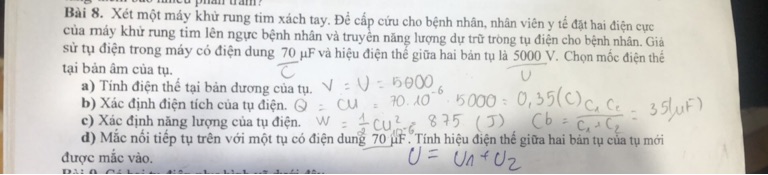 phần trăm?
Bài 8. Xét một máy khử rung tim xách tay. Để cấp cứu cho bệnh nhân, nhân viên y tế đặt hai điện cực
của máy khử rung tim lên ngực bệnh nhân và truyền năng lượng dự trữ trong tụ điện cho bệnh nhân. Giả
sử tụ điện trong máy có điện dung 70 μF và hiệu điện thế giữa hai bản tụ là 5000 V. Chọn mốc điện thế
C U
tại bản âm của tụ.
a) Tính điện thế tại bản dương của tụ. V = U = 5000
b) Xác định điện tích của tụ điện. Q = CU = 70.10^-6 . 5000 = 0,35(C)
c) Xác định năng lượng của tụ điện. W = 1/2 CU² = 875 (J) Cb = C1 C2 / C1 + C2 = 35(μF)
d) Mắc nối tiếp tụ trên với một tụ có điện dung 70 μF. Tính hiệu điện thế giữa hai bản tụ của tụ mới
được mắc vào. U = U1 + U2